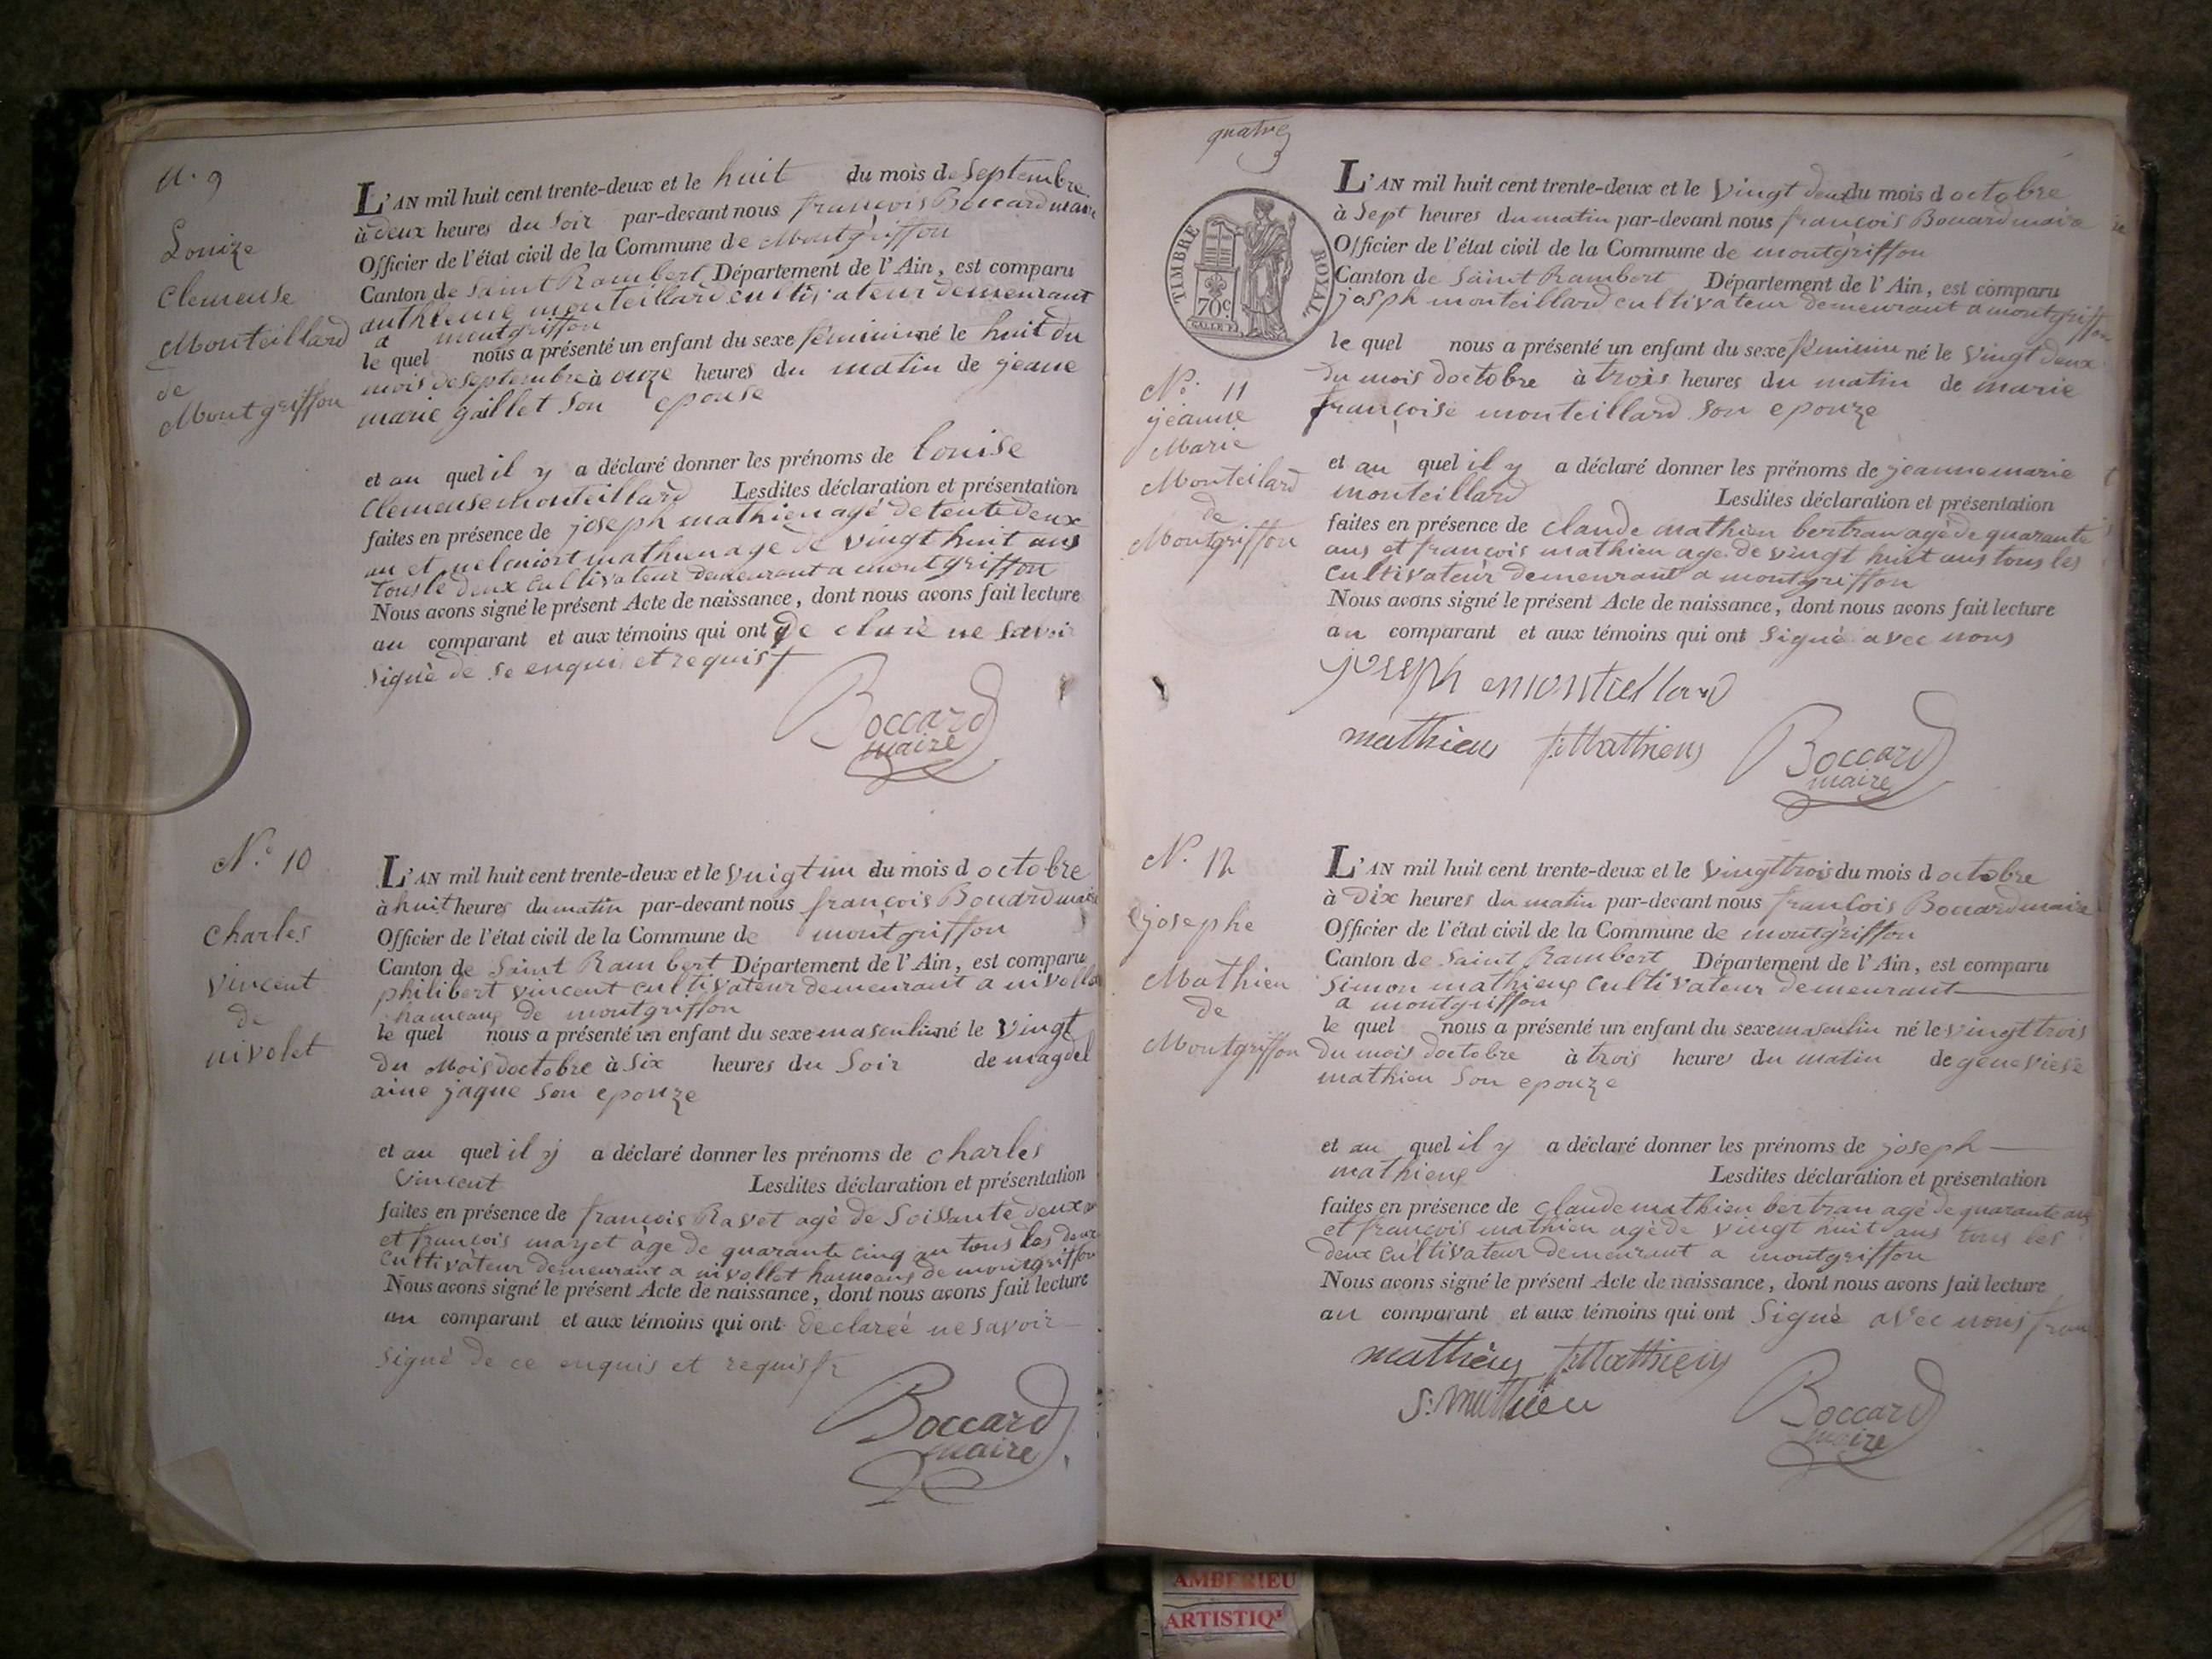 N. 9
Louize
Clemense
Monteillard
de
Montgriffon
L'AN mil huit cent trente-deux et le huit du mois de Septembre
à deux heures du soir par-devant nous françois Boccard maire
Officier de l'état civil de la Commune de Montgriffon
Canton de Saint Rambert Département de l'Ain, est comparu
anthleme monteillard cultivateur demeurant
a montgriffon
le quel nous a présenté un enfant du sexe féminin né le huit du
mois de septembre à onze heures du matin de jeane
marie gaillet son epouse
et au quel il y a déclaré donner les prénoms de louise
Clemense monteillard Lesdites déclaration et présentation
faites en présence de joseph mathieu agé de tente deux
an et mathieu agé de vingt huit ans
tous le deux cultivateur demeurant a montgriffon
Nous avons signé le présent Acte de naissance, dont nous avons fait lecture
au comparant et aux témoins qui ont de claré ne savoir
signé de se enqui et requis
Boccard
maire
N.º 10
Charles
Vincent
de
nivolet
L'AN mil huit cent trente-deux et le vuigt un du mois d octobre
à huit heures du matin par-devant nous françois Boccard maire
Officier de l'état civil de la Commune de montgriffon
Canton de Saint Rambert Département de l'Ain, est comparu
philibert vincent cultivateur demeurant a nivollet
hameaux de montgriffon
le quel nous a présenté un enfant du sexe masculin né le vingt
du Mois doctobre à six heures du Soir de magdel
aine jaque son epouze
et au quel il y a déclaré donner les prénoms de charles
Vincent Lesdites déclaration et présentation
faites en présence de françois Ravet agé de soissante deux an
et françois mayet àge de quarante cinq an tous les deux
cultivateur demeurant a nivollet hameaux de montgriffon
Nous avons signé le présent Acte de naissance, dont nous avons fait lecture
au comparant et aux témoins qui ont declareé ne savoir
signé de ce enquis et requis
Boccard
maire
quatre
TIMBRE ROYAL
70c
N.º 11
jeanne
Marie
Monteilard
de
Montgriffon
L'AN mil huit cent trente-deux et le Vingt deux du mois d octobre
à Sept heures du matin par-devant nous françois Boccard maire
Officier de l'état civil de la Commune de montgriffon
Canton de Saint Rambert Département de l'Ain, est comparu
josph monteillard cultivateur demeurant a montgriffon
le quel nous a présenté un enfant du sexe féminin né le vingt deux
du mois doctobre à trois heures du matin de marie
françoise monteillard son epouze
et au quel il y a déclaré donner les prénoms de jeanne marie
monteillard Lesdites déclaration et présentation
faites en présence de claude mathieu bertran agè de quarante
ans et françois mathieu age de vingt huit ans tous les
cultivateur demeurant a montgriffon
Nous avons signé le présent Acte de naissance, dont nous avons fait lecture
au comparant et aux témoins qui ont signé avec nous
joseph monteillard
mathieu f: Mathieu Boccard
maire
N.º 12
josephe
Mathieu
de
Montgriffon
L'AN mil huit cent trente-deux et le vingt trois du mois d octobre
à Dix heures du matin par-devant nous françois Boccard maire
Officier de l'état civil de la Commune de montgriffon
Canton de Saint Rambert Département de l'Ain, est comparu
Simon mathieux cultivateur demeurant
a montgriffon
le quel nous a présenté un enfant du sexe masculin né le vingt trois
du mois doctobre à trois heures du matin de genevieve
mathieu son epouze
et au quel il y a déclaré donner les prénoms de joseph
mathieux Lesdites déclaration et présentation
faites en présence de claude mathieu bertran agé de quarante ans
et françois mathieu agé de vingt huit ans tous les
deux cultivateur demeurant a montgriffon
Nous avons signé le présent Acte de naissance, dont nous avons fait lecture
au comparant et aux témoins qui ont Signè avec nous
mathieu f: Mathieu
S: Mathieu Boccard
maire
AMBERIEU
ARTISTIQ